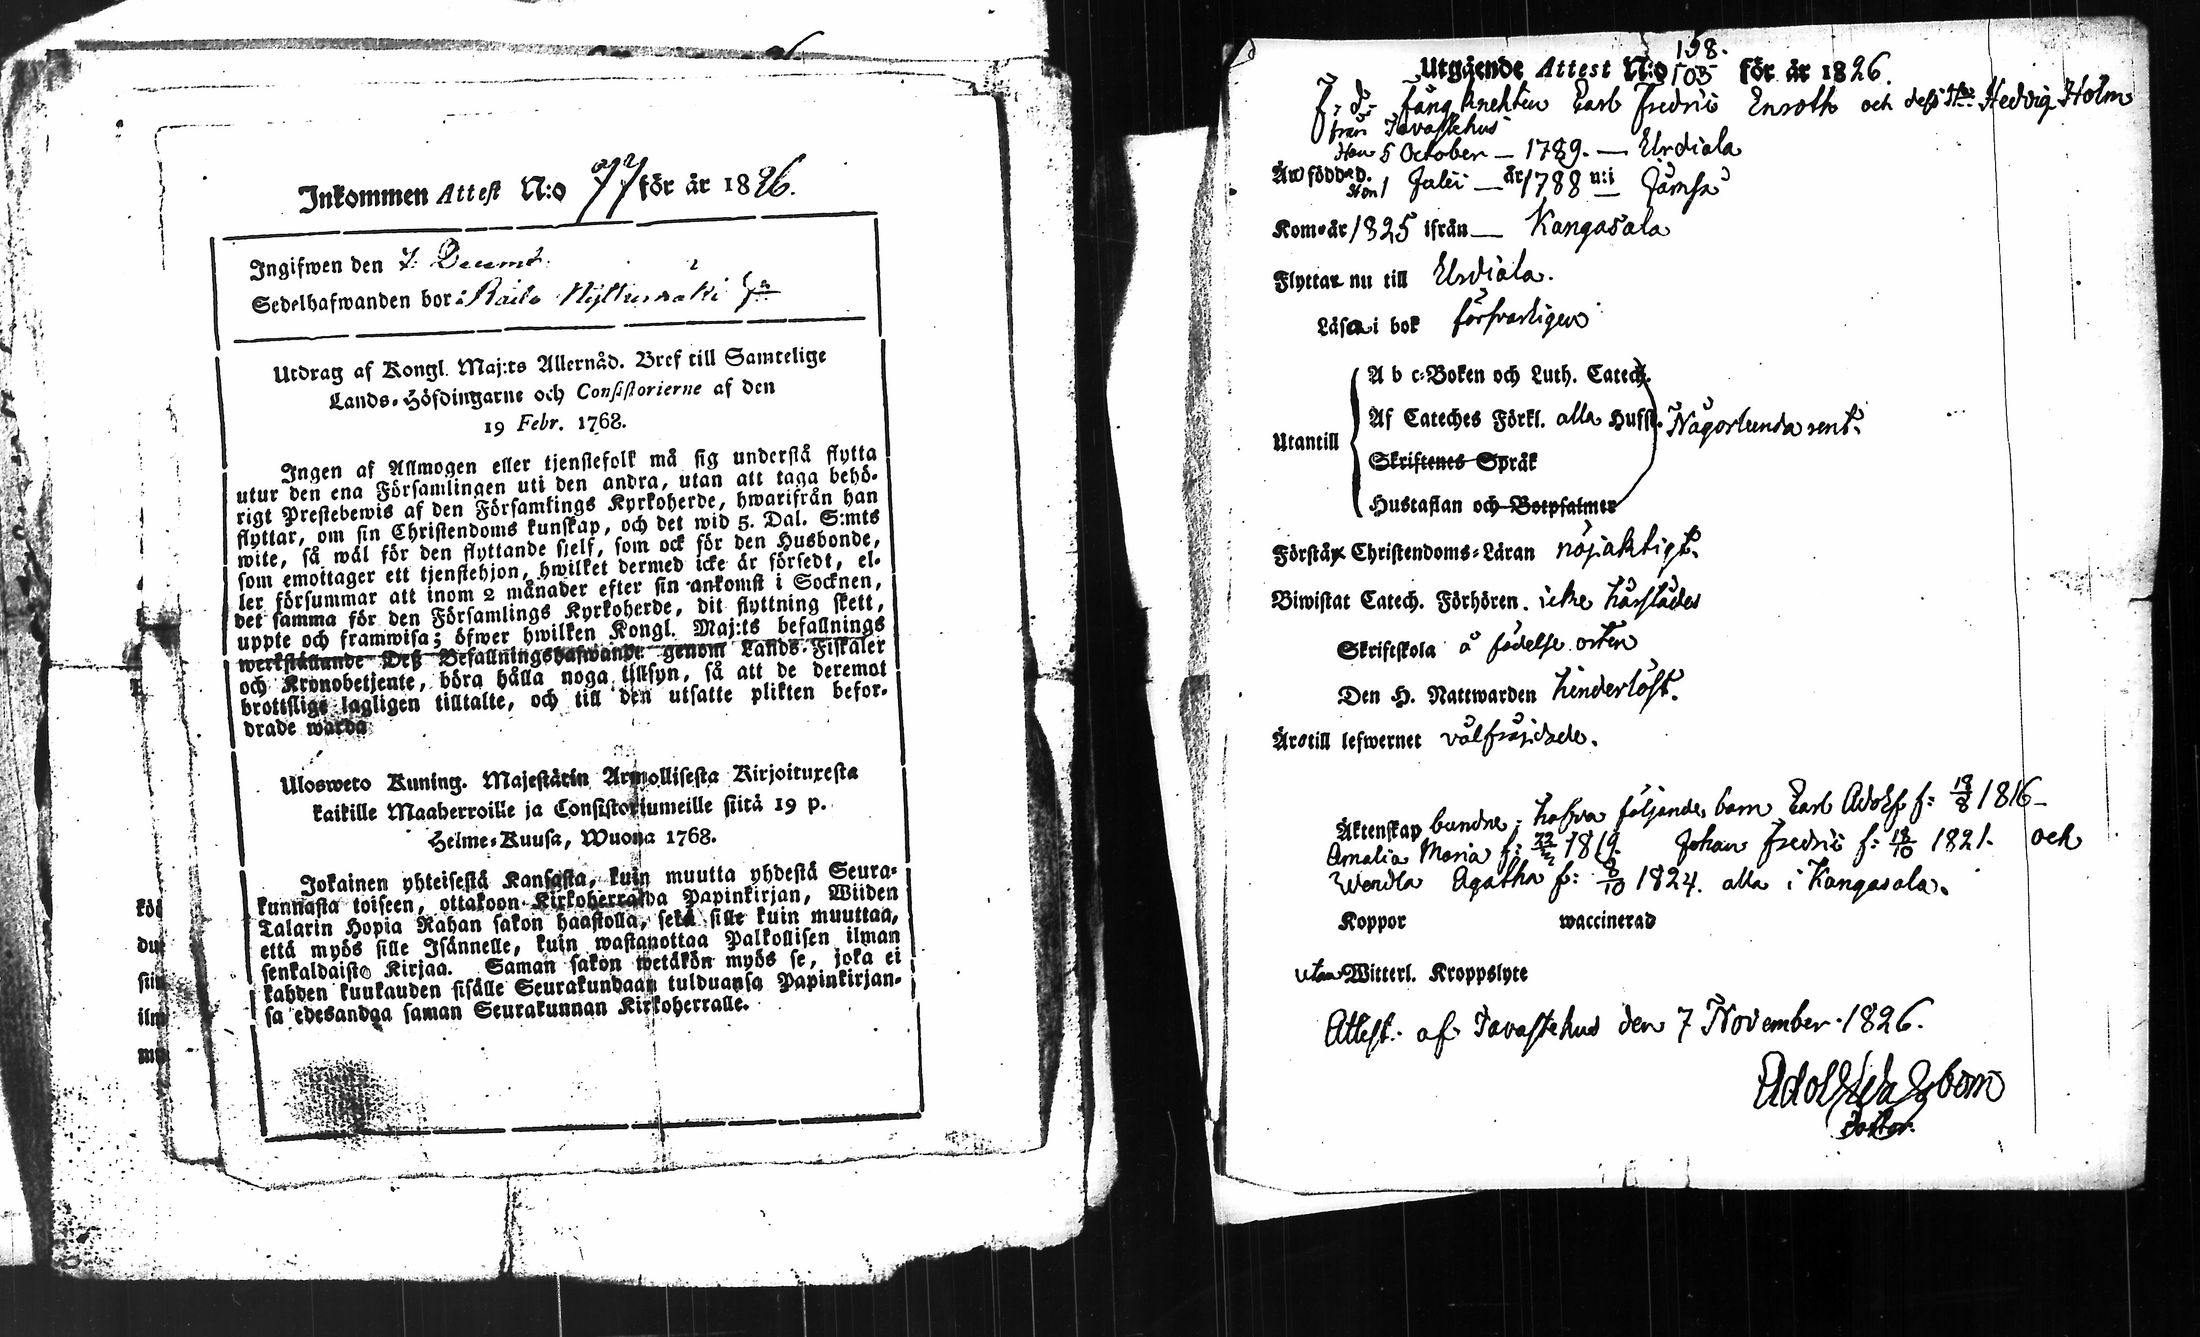 Inkommen Attest N:o 77 för år 1826.
Ingifwen den 7. Decemb.
Sedelhafwanden bor i Raila
Utdrag af Kongl. Maj:ts Allernåd. Bref till Samtelige
Lands-Höfdingarne och Consistorierne af den
19 Febr. 1768.
Ingen af Allmogen eller tjenstefolk må sig understå flytta
utur den ena Församlingen uti den andra, utan att taga behö-
rigt Prestebewis af den Församlings Kyrkoherde, hwarifrån han
flyttar, om sin Christendoms kunskap, och det wid 5. Dal. S:mts
wite, så wäl för den flyttande sjelf, som ock för den Husbonde,
som emottager ett tjenstehjon, hwilket dermed icke är försedt, el-
ler försummar att inom 2 månader efter sin ankomst i Socknen,
det samma för den Församlings Kyrkoherde, dit flyttning skett,
uppte och framwisa; öfwer hwilken Kongl. Maj:ts befallnings
werkställande Deß Befallningshafwande genom Lands-Fiskaler
och Kronobetjente, böra hålla noga tillsyn, så att de deremot
brottslige lagligen tilltalte, och till den utsatte plikten befor-
drade warda
Ulosweto Kuning. Majestätin Armollisesta Kirjoituxesta
kaikille Maaherroille ja Consistoriumeille siitä 19 p.
Helme-Kuusa, Wuonna 1768.
Jokainen yhteisestä Kansasta, kuin muutta yhdestä Seura-
kunnasta toiseen, ottakoon Kirkoherralda Papinkirjan, Wiiden
Talarin Hopia Rahan sakon haastolla, sekä sille kuin muuttaa,
että myös sille Isännelle, kuin wastanottaa Palkollisen ilman
senkaldaista Kirjaa. Saman sakon wetäkön myös se, joka ei
kahden kuukauden sisälle Seurakundaan tulduansa Papinkirjan-
sa edesandaa saman Seurakunnan Kirkoherralle.
köi
dut
siin
ilm
Utgående Attest N:o 103 158. för år 1826.
F: d: fångknekten Carl Fredric Enroth och dess Hu Hedvig Holm
från Tavastehus
Han 5 October — 1789. — Urdiala
Äro födde d. Hon 1 Julii — år 1788 uti Jämsä
Kom år 1825 ifrån — Kangasala
Flyttar nu till Urdiala.
Läsa i bok försvarligen
A b c-Boken och Luth. Catech.
Af Cateches Förkl. alla Hufst.
Utantill
Någorlunda rent.
Skriftenes Språk
Hustaflan och Botpsalmer
Förstår Christendoms-Läran nöjaktigt.
Biwistat Catech. Förhören. icke härstädes
Skriftskola å födelse orten
Den H. Nattwarden hinderlöst.
Äro till lefwernet välfräjdade.
Äktenskap bundne; hafva följande barn Carl Adolf f: 18/8 1816
Amalia Maria f: 1819. Johan Fredric f: 18/10 1821. och
Wendla Agatha f: 8/10 1824. alla i Kangasala.
Koppor waccinerad
utan Witterl. Kroppslyte
Attest. af Tavastehus den 7 November 1826.
Pastor.